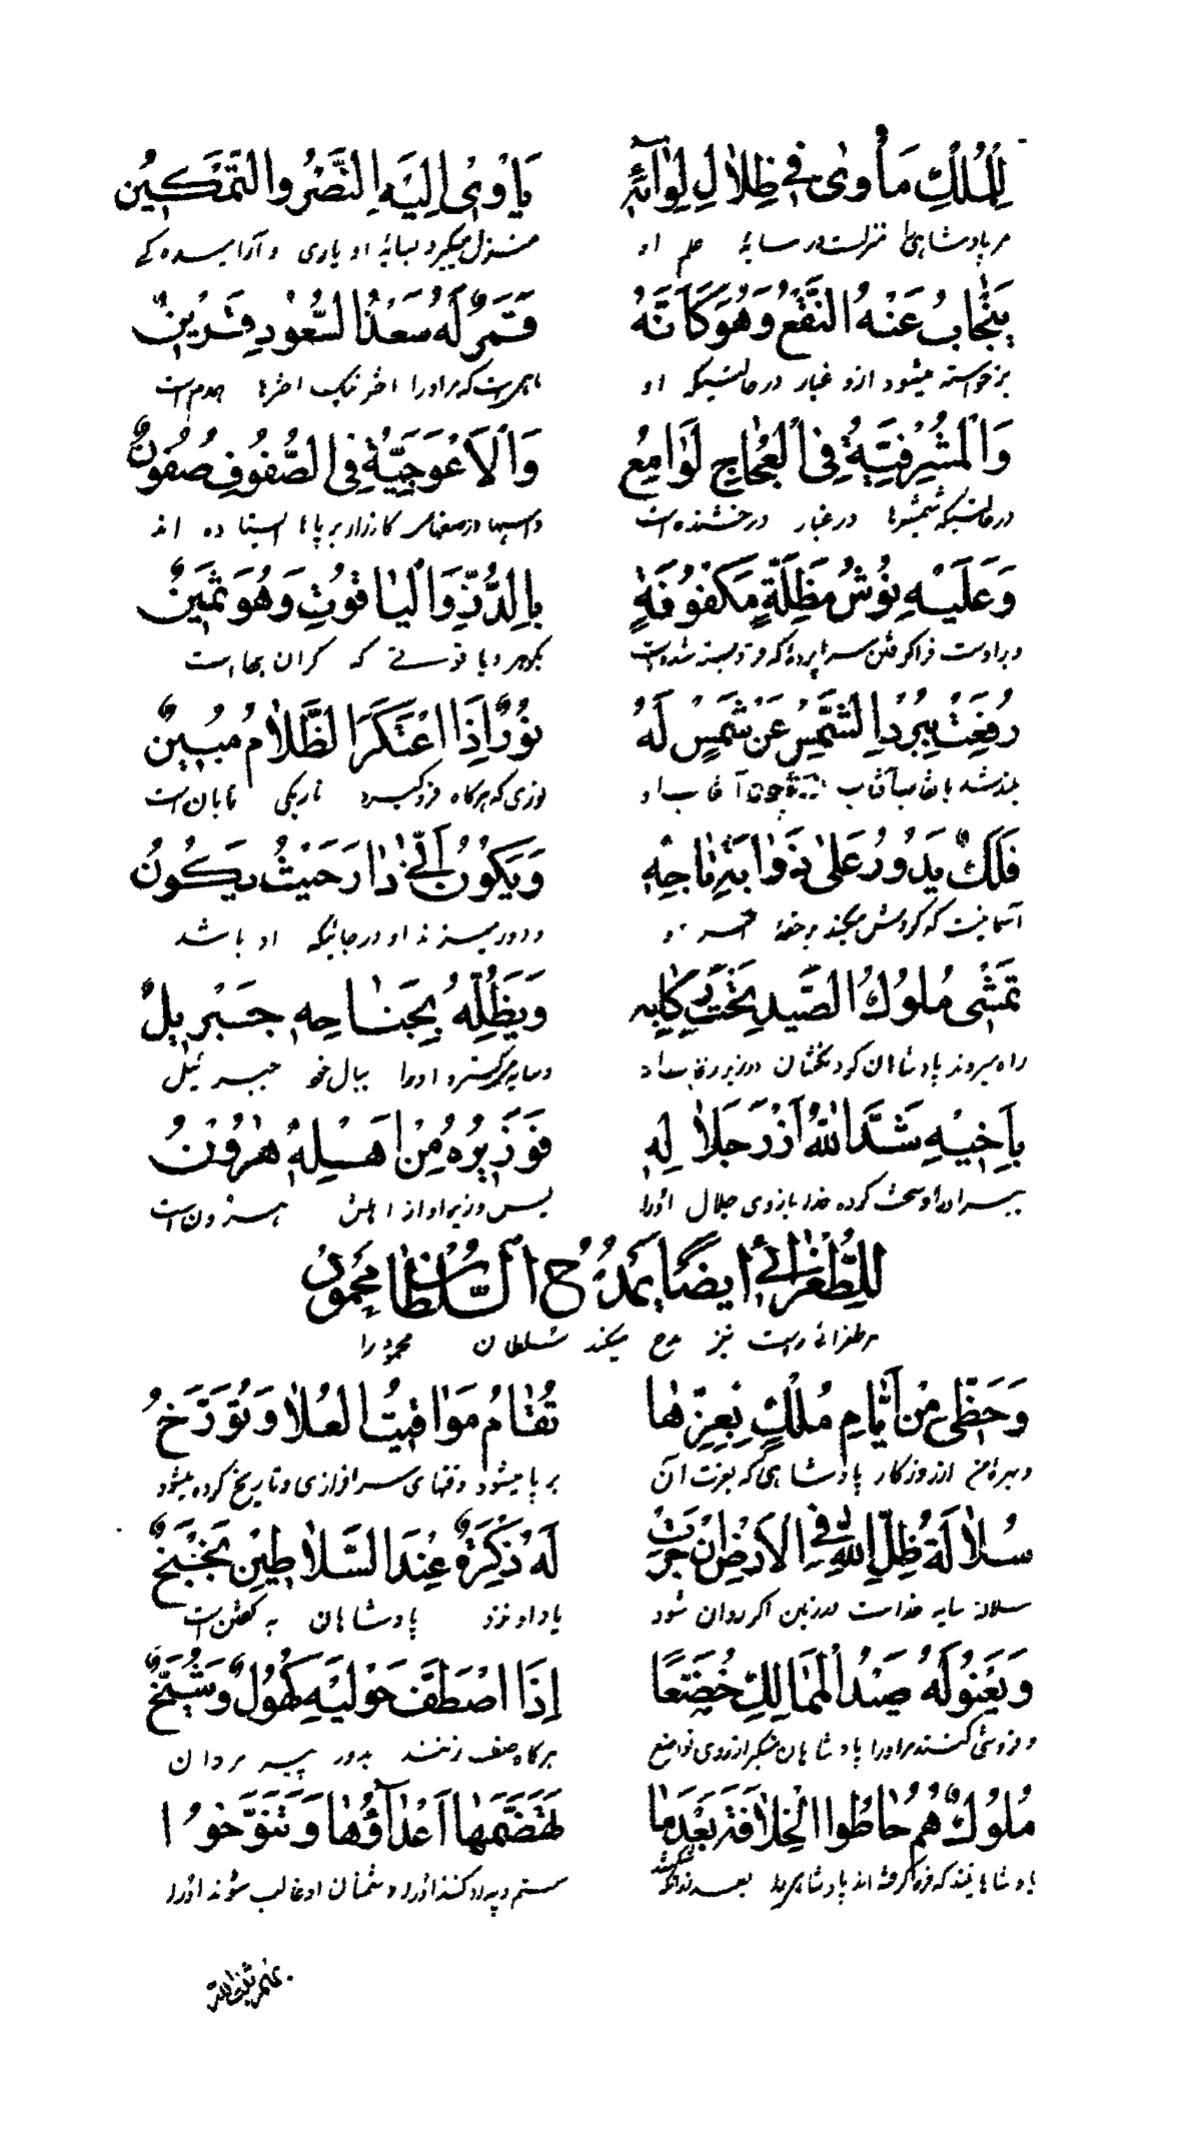 لِلْمُلْكِ مَأْوىٰ فِي ظِلالِ لِوٰائِهِ يَأْوىٰ اِلَيْهِ النَّصْرُ وَالتَّمْكِيْنُ
مر پادشاهی را منزلت در سایهٔ علم او منزل میگیرد بسایهٔ او یاری و
يَنْجٰابُ عَنْهُ النَّقْعُ وَهُوَ كَاَنَّهُ قَمَرٌ لَهُ سَعْدُ السُّعُودِ قَرِيْنٌ
برخواسته میشود ازو غبار در حالتیکه او که مر او را اختر نیک اخترها همدم است
وَالْمَشْرِفِيَّةُ فِى الْعَجٰاجِ لَوٰامِعُ وَالْاَعْوَجِيَّةُ فِى الصُّفُوفِ صُفُونٌ
در حالتیکه شمشیرها در غبار درخشنده است و اسبها در صفهای کارزار بر پاها ایستاده اند
وَعَلَيْهِ نُوْشُ مَظَلَّةٍ مَكْفُوفَةٍ بِالدُّرِّ وَالْيٰاقُوتِ وَهُوَ ثَمِيْنٌ
و بر اوست که بگوهر و یاقوتی که گران بها است
رُفِعَتْ بِبُرْدِ الشَّمْسِ عَنْ شَمْسٍ لَهُ نُوْرٌ اِذَا اعْتَكَرَ الظَّلامُ مُبِيْنٌ
بلند شد آفتاب آفتاب او نوری که هرگاه فرو گیرد تاریکی تابان است
فَلَكٌ يَدُورُ عَلىٰ ذَوٰابَةِ تٰاجِهِ وَيَكُوْنُ اَنّىٰ دٰارَ حَيْثُ يَكُونُ
که گردش میکند بر او در جائیکه او باشد
تَمْشِى مُلُوكُ الصَّيْدِ تَحْتَ رِكٰابِهِ وَيَظَلِّهُ بِجَنٰاحِهِ جَبْرِيلٌ
راه میروند پادشاهان گردنکشان در زیر رکاب او و سایه او را ببال خود جبرئیل
بِاَخِيْهِ شَدَّ اللّٰهُ اَزْرَ جَلالِهِ فَوَزِيْرُهُ مِنْ اَهْلِهِ هٰرُوْنُ
ببرادر او سخت کرده خدا بازوی جلال اورا پس وزیر او از اهلش هرون است
لِلطُّغْرائِي اَيضًا يَمْدَحُ السُّلْطٰانَ مَحْمُود
مر طغرائی راست نیز مدح میکند سلطان محمود را
وَحَظِّى مِنْ اَيّٰامِ مُلْكٍ بِعِزِّهٰا تُقٰامُ مَوٰاقِيْتُ الْعُلا وَتُوَرَّخُ
و بهرهٔ من از روزگار پادشاهی که بعزت آن بر پا میشود وقتهای سرافرازی و تاریخ کرده میشود
سُلالَةُ ظِلِّ اللّٰهِ فِى الْاَرْضِ اِنْ جَرَتْ لَهُ ذِكْرَةٌ عِنْدَ السَّلاطِيْنِ بَخْبَخٌ
سلالهٔ سایه خداست در زمین اگر روان شود یاد او نزد پادشاهان به گفتن است
وَيَعْنُو لَهُ صَيْدُ الْمَمٰالِكِ خُضَّعًا اِذَا اصْطَفَّ حَوْلَيْهِ كُهُولٌ وَشُيَّخٌ
و فروتنی کنند مر او را پادشاهان متکبر از روی تواضع هرگاه صف زنند بدور پیر مردان
مُلُوكٌ هُمُ حٰاطُوا الْخِلافَةَ بَعْدَمٰا تَهَضَّمَهٰا اَعْدٰاؤُهٰا وَتَنَوَّخُوا
که فرو گرفته اند پادشاهی را بعد ستم و بیداد کنند اورا دشمنان او غالب شوند اورا